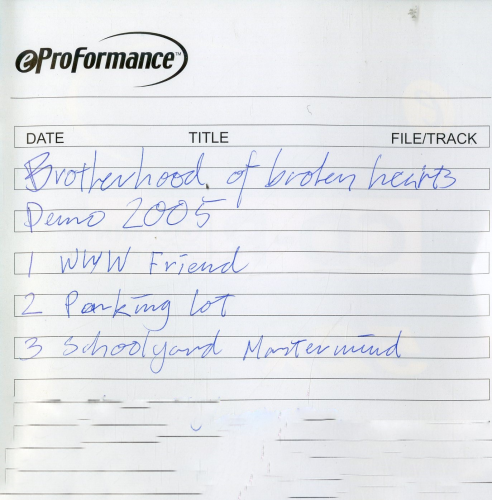 eProFormance™
DATE TITLE FILE/TRACK
Brotherhood of broken hearts
Demo 2005
1 WWW Friend
2 Parking lot
3 Schoolyard Mastermind